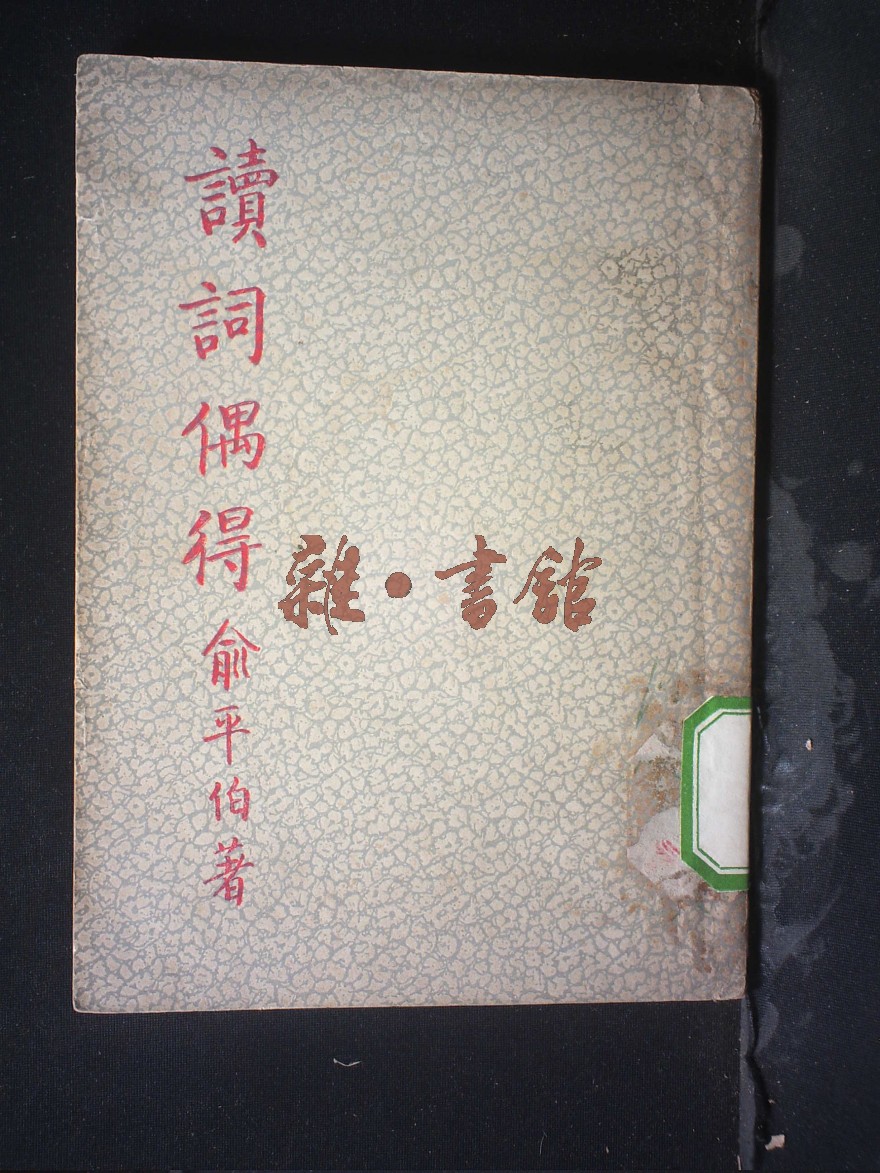 讀詞偶得 俞平伯著
雜·書館